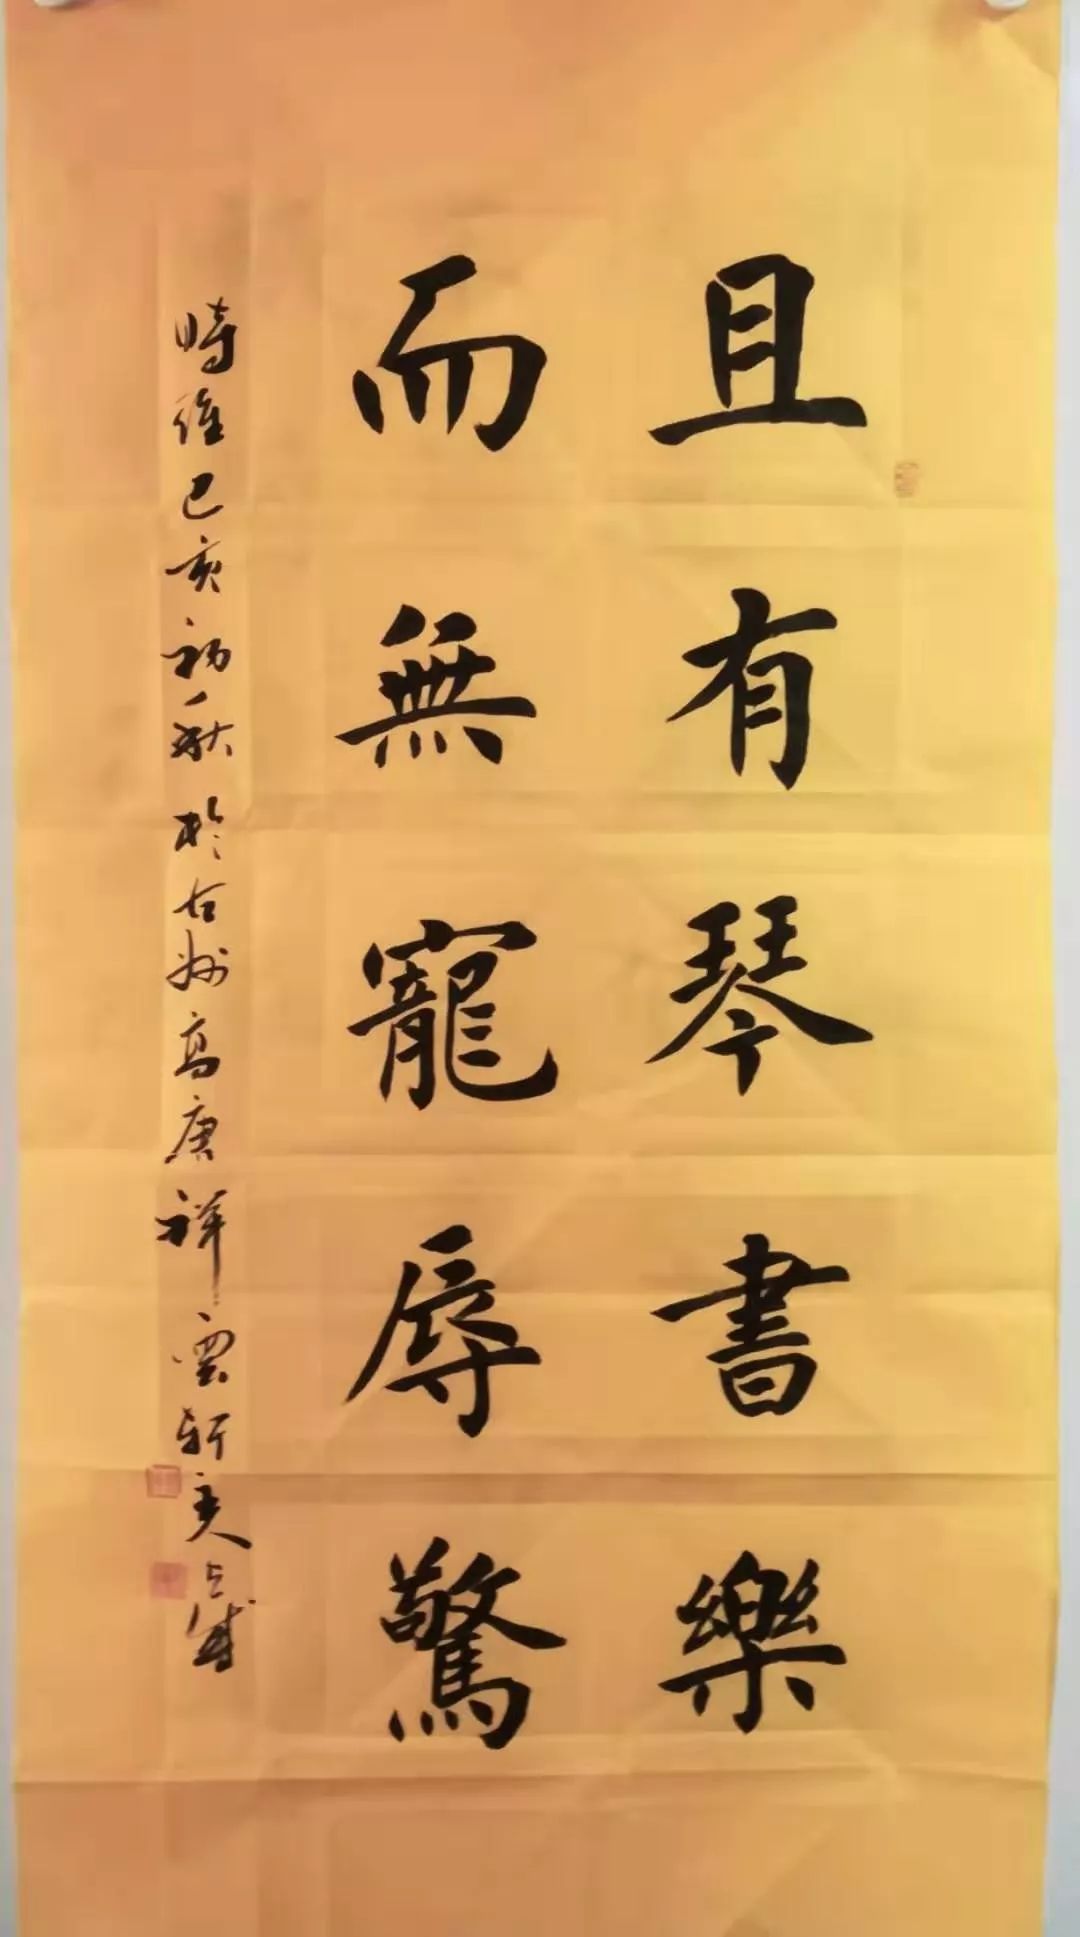 且有琴書樂
而無寵辱驚
時維己亥初秋於古州高唐祥雲軒主人